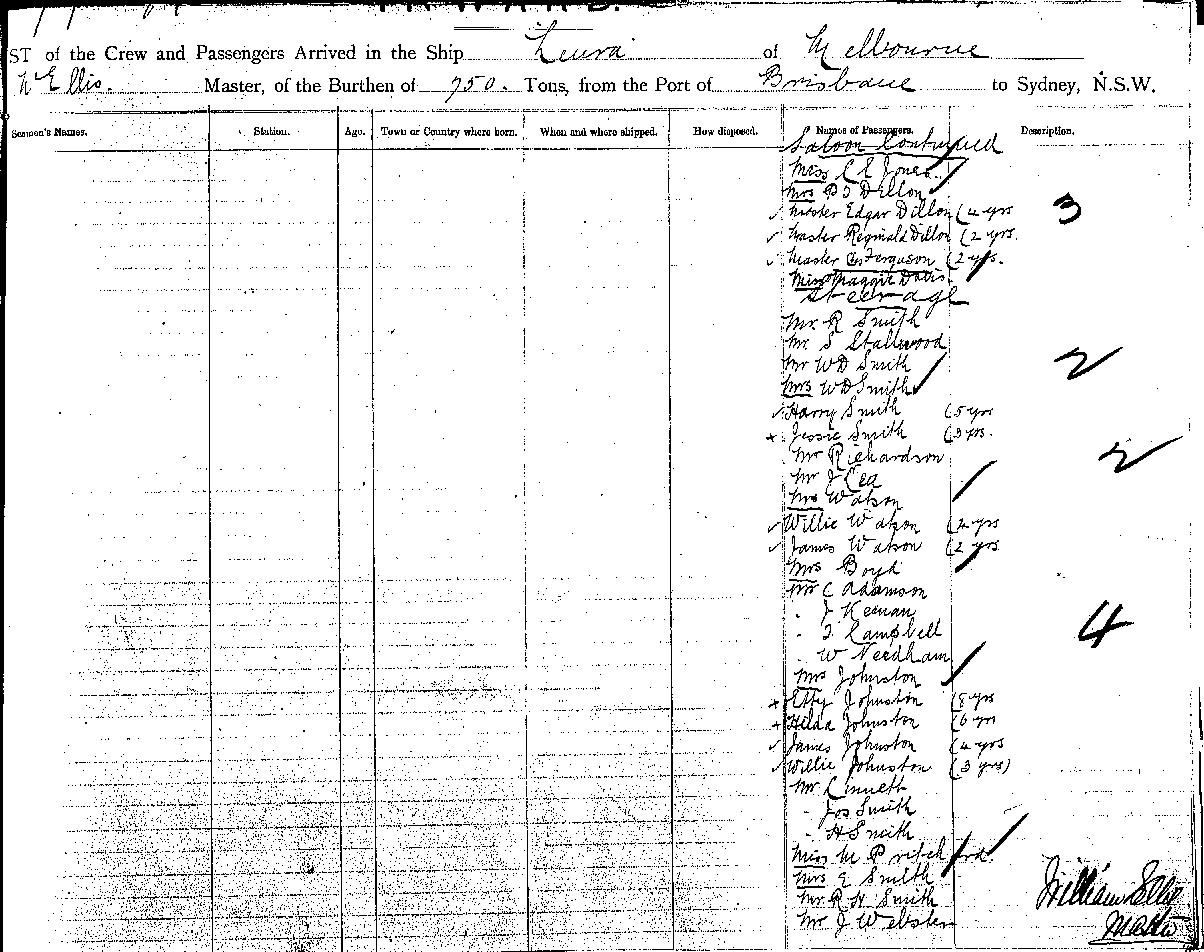 ST of the Crew and Passengers Arrived in the Ship Leura of Melbourne
W Ellis. Master, of the Burthen of 750. Tons, from the Port of Brisbane to Sydney, N.S.W.
Seamen's Names. Station. Age. Town or Country where born. When and where shipped. How disposed. Names of Passengers. Description.
Saloon Continued
Miss C E Jones
Mrs Dillon
Master Edgar Dillon (4 yrs 3
Master Reginald Dillon (2 yrs.
Master Ferguson (2 yrs.
Miss Maggie Davis.
Steerage
Mr R Smith
Mr S Stallwood
Mr W D Smith 2
Mrs W D Smith
Harry Smith (5 yrs
Jessie Smith (3 yrs.
Mr Richardson 2
Mr J Cea
Mrs Watson
Willie Watson (4 yrs
James Watson (2 yrs
Mrs Boyd
Mr C Adamson
" J Keenan
" T Campbell 4
W Needham
Mrs Johnston
Etty Johnston (8 yrs
Hilda Johnston (6 yrs
James Johnston (4 yrs
Willie Johnston (3 yrs)
Mr
" Jos Smith
" H Smith
Miss M Pritchard.
Mrs E Smith
Mr R H Smith
Mr J Webster
William Ellis
Master